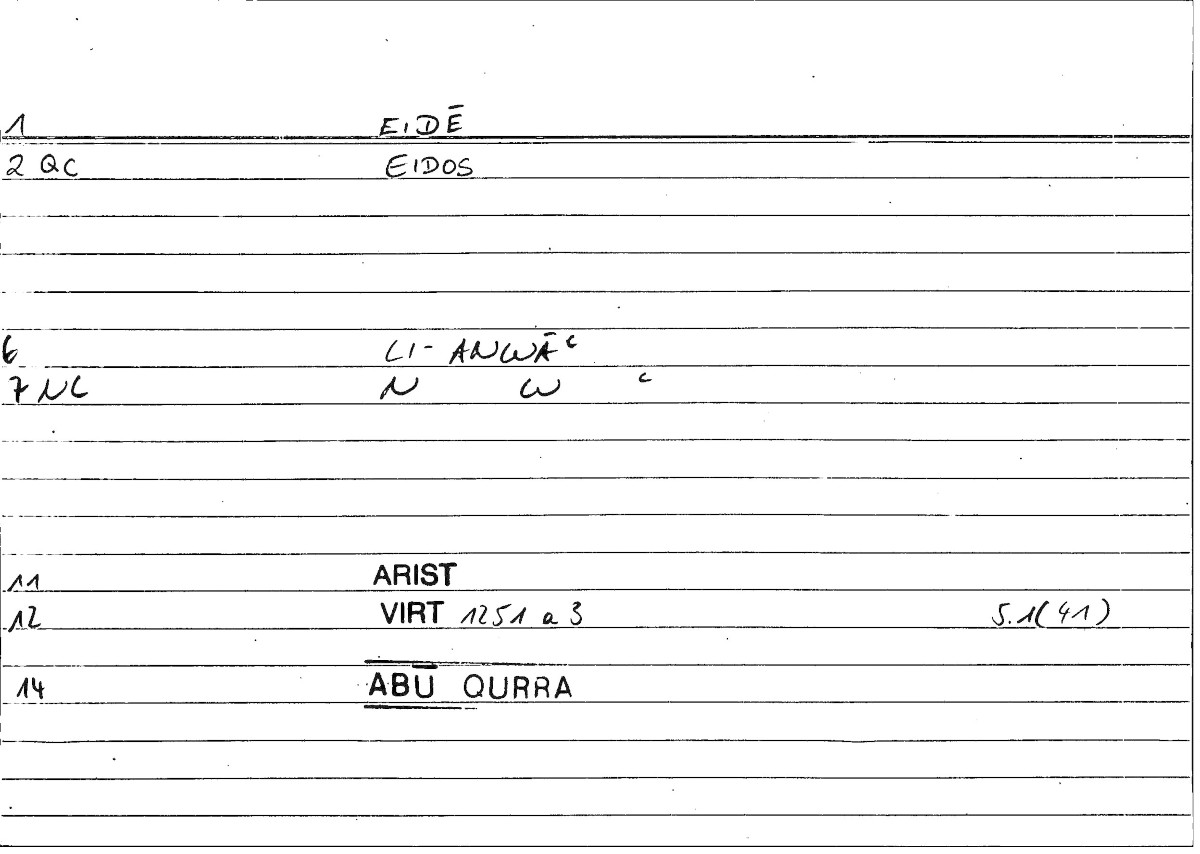 1 EIDĒ
2 QC EIDOS
6 LI- ANWĀ ͨ
7 NC N W ͨ
11 ARIST
12 VIRT 1251 a 3 5.1(41)
14 ABŪ QURRA